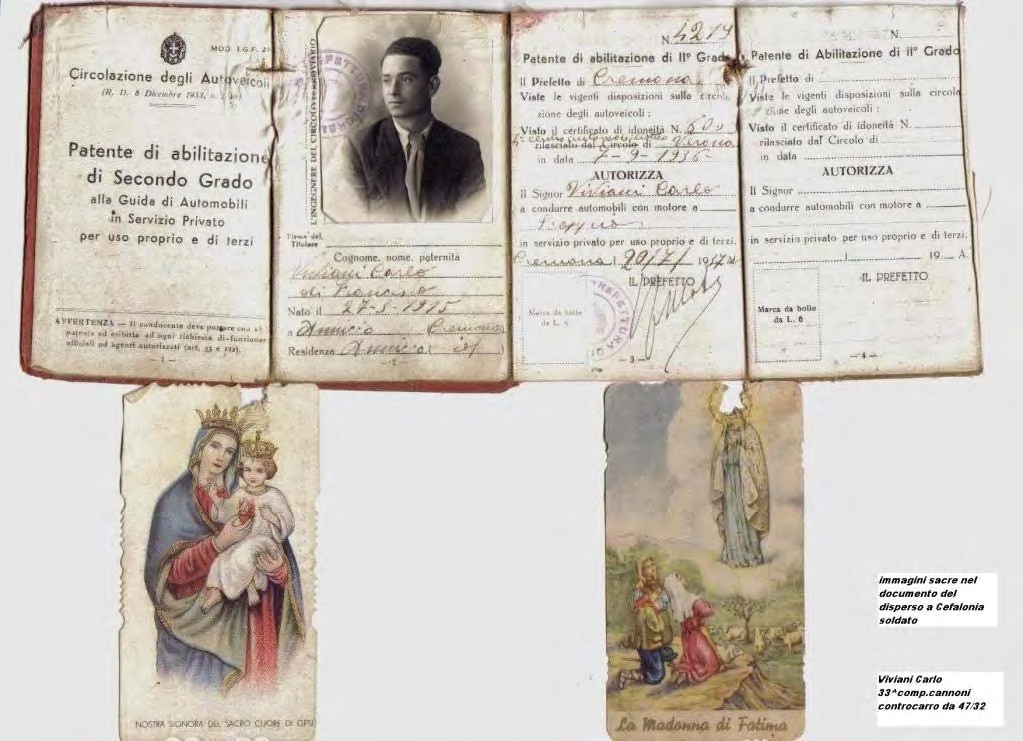 MOD. I.G.F. 21
Circolazione degli Autoveicoli
(R. D. 8 Dicembre 1933, n.
Patente di abilitazione
di Secondo Grado
alla Guida di Automobili
in Servizio Privato
per uso proprio e di terzi
AVVERTENZA — Il conducente deve portare con sè
patente ed esibirla ad ogni richiesta di funzionari
ufficiali od agenti autorizzati (art.
- 1 -
L'INGEGNERE DEL CIRCOLO FERROVIARIO
Firma del
Titolare
Cognome, nome, paternità
Viviani Carlo
di
Nato il 27-5-1915
a Annicco Cremona
Residenza Annicco
- 2 -
N. 4214
Patente di abilitazione di IIº Grado
Il Prefetto di Cremona
Viste le vigenti disposizioni sulla circola
zione degli autoveicoli :
Visto il certificato di idoneità N.
rilasciato dal Circolo di Verona
in data 7-9-1936
AUTORIZZA
Il Signor Viviani Carlo
a condurre automobili con motore a
scoppio
in servizio privato per uso proprio e di terzi.
Cremona, 1 20/7/ 1937
IL PREFETTO
PREFETTURA
Marca da bollo
da L. 6
- 3 -
N.
Patente di Abilitazione di IIº Grado
Il Prefetto di
Viste le vigenti disposizioni sulla circola
zione degli autoveicoli :
Visto il certificato di idoneità N.
rilasciato dal Circolo di
in data
AUTORIZZA
Il Signor
a condurre automobili con motore a
in servizio privato per uso proprio e di terzi.
19 A.
IL PREFETTO
Marca da bollo
da L. 6
- 4 -
NOSTRA SIGNORA DEL SACRO CUORE DI GESÙ
La Madonna di Fatima
immagini sacre nel
documento del
disperso a Cefalonia
soldato
Viviani Carlo
33^comp.cannoni
controcarro da 47/32